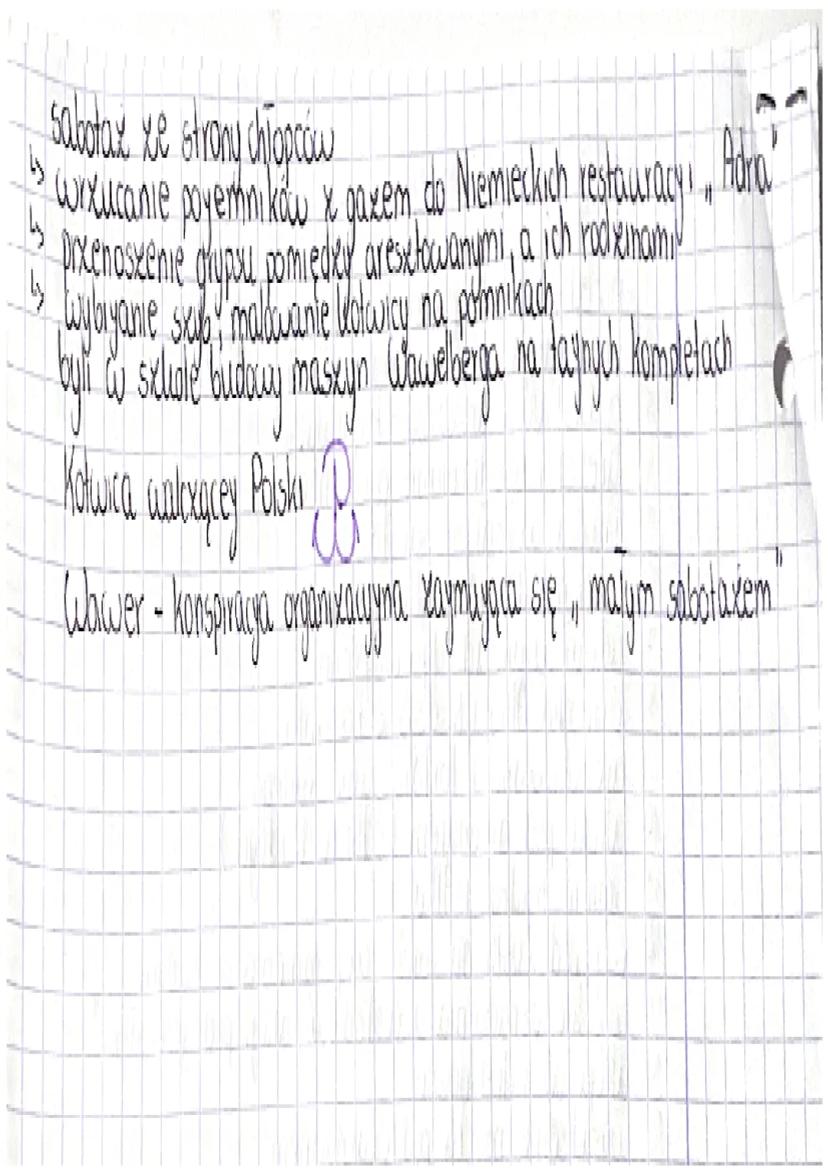 sabotaż ze strony chłopców
↳ wrzucanie pojemników z gazem do Niemieckich restauracji „Adria"
↳ przenoszenie grypsu pomiędzy aresztowanymi, a ich rodzinami
↳ wybijanie szyb, malowanie kotwicy na pomnikach
byli w szkole budowy maszyn Wawelberga na tajnych kompletach
Kotwica walczącej Polski
Wawer - konspiracja organizacyjna zajmująca się „małym sabotażem"